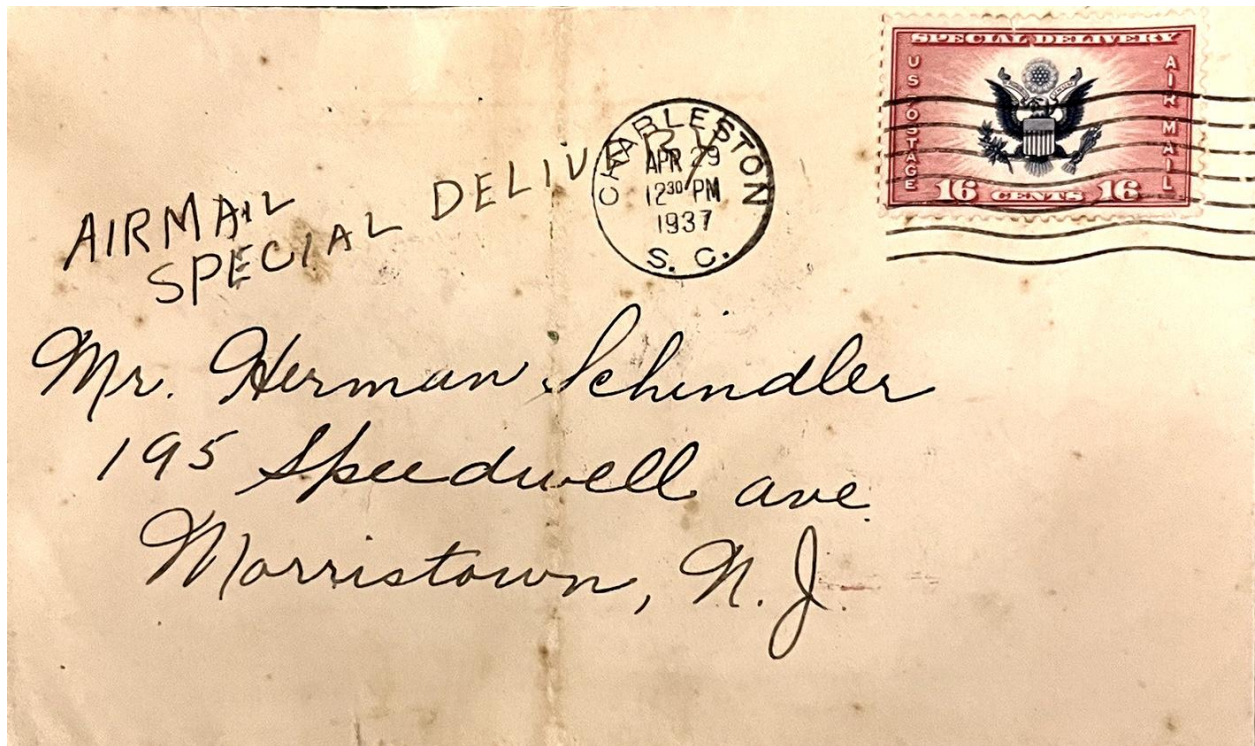 SPECIAL DELIVERY
US POSTAGE
AIR MAIL
16 CENTS 16
CHARLESTON
APR 29
12 30 PM
1937
S. C.
AIRMAIL
SPECIAL DELIVERY
Mr. Herman Schindler
195 Speedwell ave
Morristown, N. J.